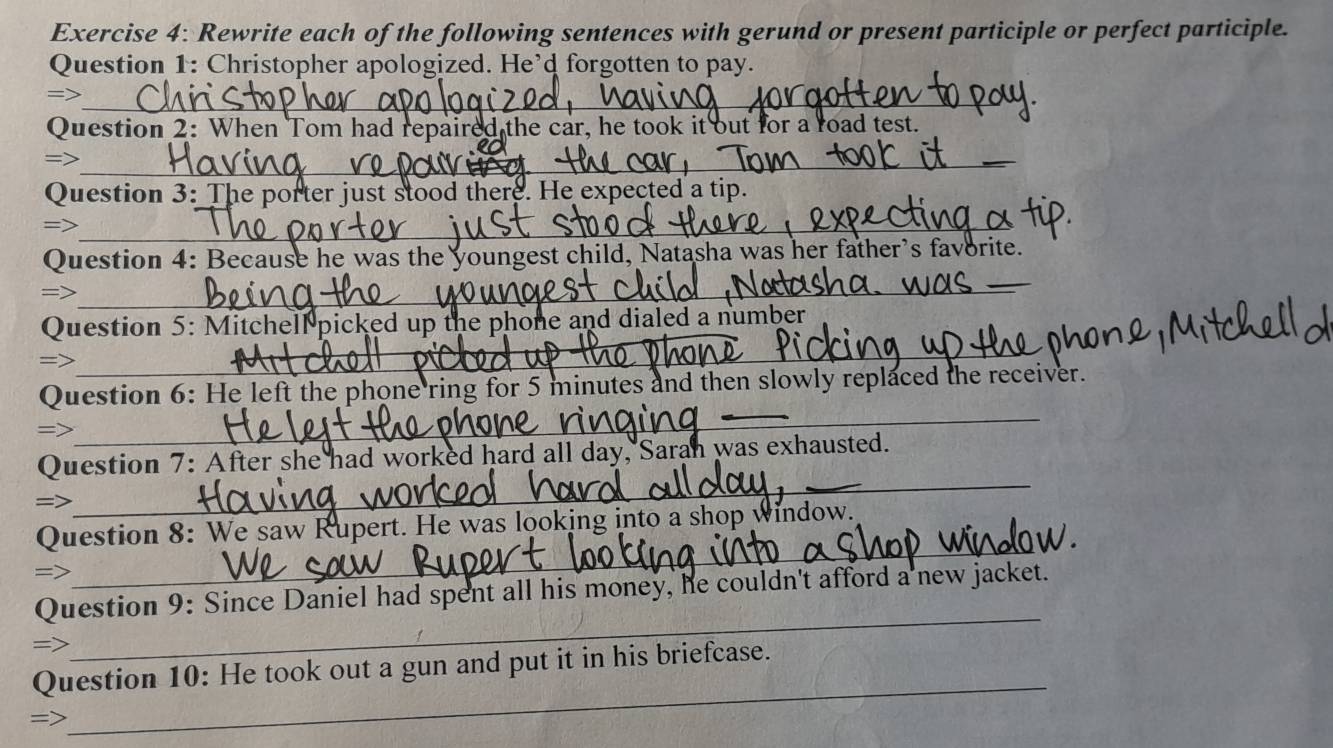 Exercise 4: Rewrite each of the following sentences with gerund or present participle or perfect participle.
Question 1: Christopher apologized. He'd forgotten to pay.
=> Christopher apologized, having forgotten to pay.
Question 2: When Tom had repaired the car, he took it out for a road test.
=> Having repairing ed the car, Tom took it —
Question 3: The porter just stood there. He expected a tip.
=> The porter just stood there, expecting a tip.
Question 4: Because he was the youngest child, Natasha was her father's favorite.
=> Being the youngest child, Natasha was —
Question 5: Mitchell picked up the phone and dialed a number
=> Mitchell picked up the phone Picking up the phone, Mitchell d
Question 6: He left the phone ring for 5 minutes and then slowly replaced the receiver.
=> He left the phone ringing —
Question 7: After she had worked hard all day, Sarah was exhausted.
=> Having worked hard all day, —
Question 8: We saw Rupert. He was looking into a shop window.
=> We saw Rupert looking into a shop window.
Question 9: Since Daniel had spent all his money, he couldn't afford a new jacket.
=>
Question 10: He took out a gun and put it in his briefcase.
=>